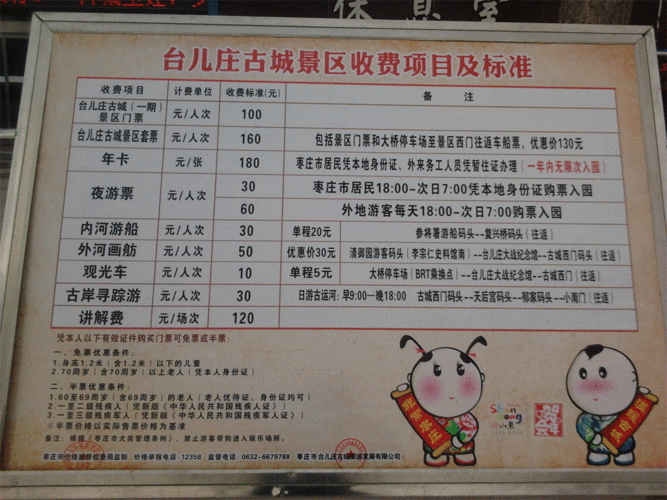 休息室
台儿庄古城景区收费项目及标准
收费项目 计费单位 收费标准(元) 备 注
台儿庄古城(一期)景区门票 元/人次 100
台儿庄古城景区套票 元/人次 160 包括景区门票和大桥停车场至景区西门往返车船票,优惠价130元
年卡 元/张 180 枣庄市居民凭本地身份证、外来务工人员凭暂住证办理(一年内无限次入园)
夜游票 元/人次 30 枣庄市居民18:00-次日7:00凭本地身份证购票入园
60 外地游客每天18:00-次日7:00购票入园
内河游船 元/人次 30 单程20元 参将署游船码头--复兴桥码头(往返)
外河画舫 元/人次 50 优惠价30元 清御园游客码头(李宗仁史料馆南)--台儿庄大战纪念馆--古城西门码头(往返)
观光车 元/人次 10 单程5元 大桥停车场(BRT乘换点)--台儿庄大战纪念馆--古城西门(往返)
古岸寻踪游 元/人次 30 日游古运河:早9:00—晚18:00 古城西门码头--天后宫码头--郁家码头--小南门(往返)
讲解费 元/场次 120
凭本人以下有效证件购买门票可免票或半票:
一、免票优惠条件:
1.身高1.2米(含1.2米)以下的儿童
2.70周岁(含70周岁)以上老人(凭本人身份证)
二、半票优惠条件:
1.60至69周岁(含69周岁)的老人(老人优待证、身份证均可)
2.一至二级残疾人(凭新版《中华人民共和国残疾人证》)
3.一至三级残疾军人(凭新版《中华人民共和国残疾军人证》)
※半票价格以实际售票价格为基准
备注:根据《枣庄市犬类管理条例》,禁止游客带狗进入娱乐场所。
枣庄市价格监督检查局监制 价格举报电话:12358 监督电话:0632-6679788 枣庄市台儿庄古城旅游发展有限公司